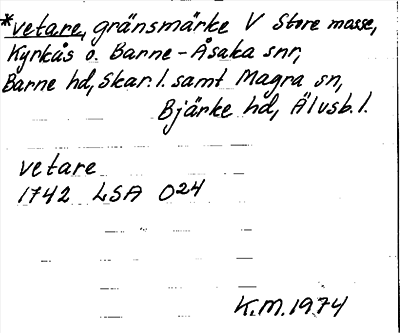 *vetare, gränsmärke V Store mosse,
Kyrkås o. Barne-Åsaka snr,
Barne hd, Skar. l. samt Magra sn,
Bjärke hd, Älvsb. l.
vetare
1742 LSA O24
K.M. 1974